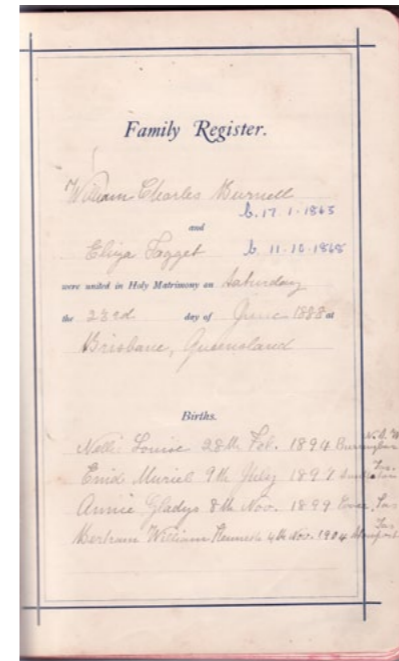 Family Register.
William Charles Burnell
b. 17. 1. 1865
and
Eliza Tagget b. 11. 10. 1868
were united in Holy Matrimony on Saturday
the 23rd day of June 1888 at
Brisbane, Queensland
Births.
Nelli Louise 28th Feb. 1894
Enid Muriel 9th July 1897 Tas.
Annie Gladys 8th Nov. 1899 Tas
Bertram William Kenneth 4th Nov. 1904 Tas